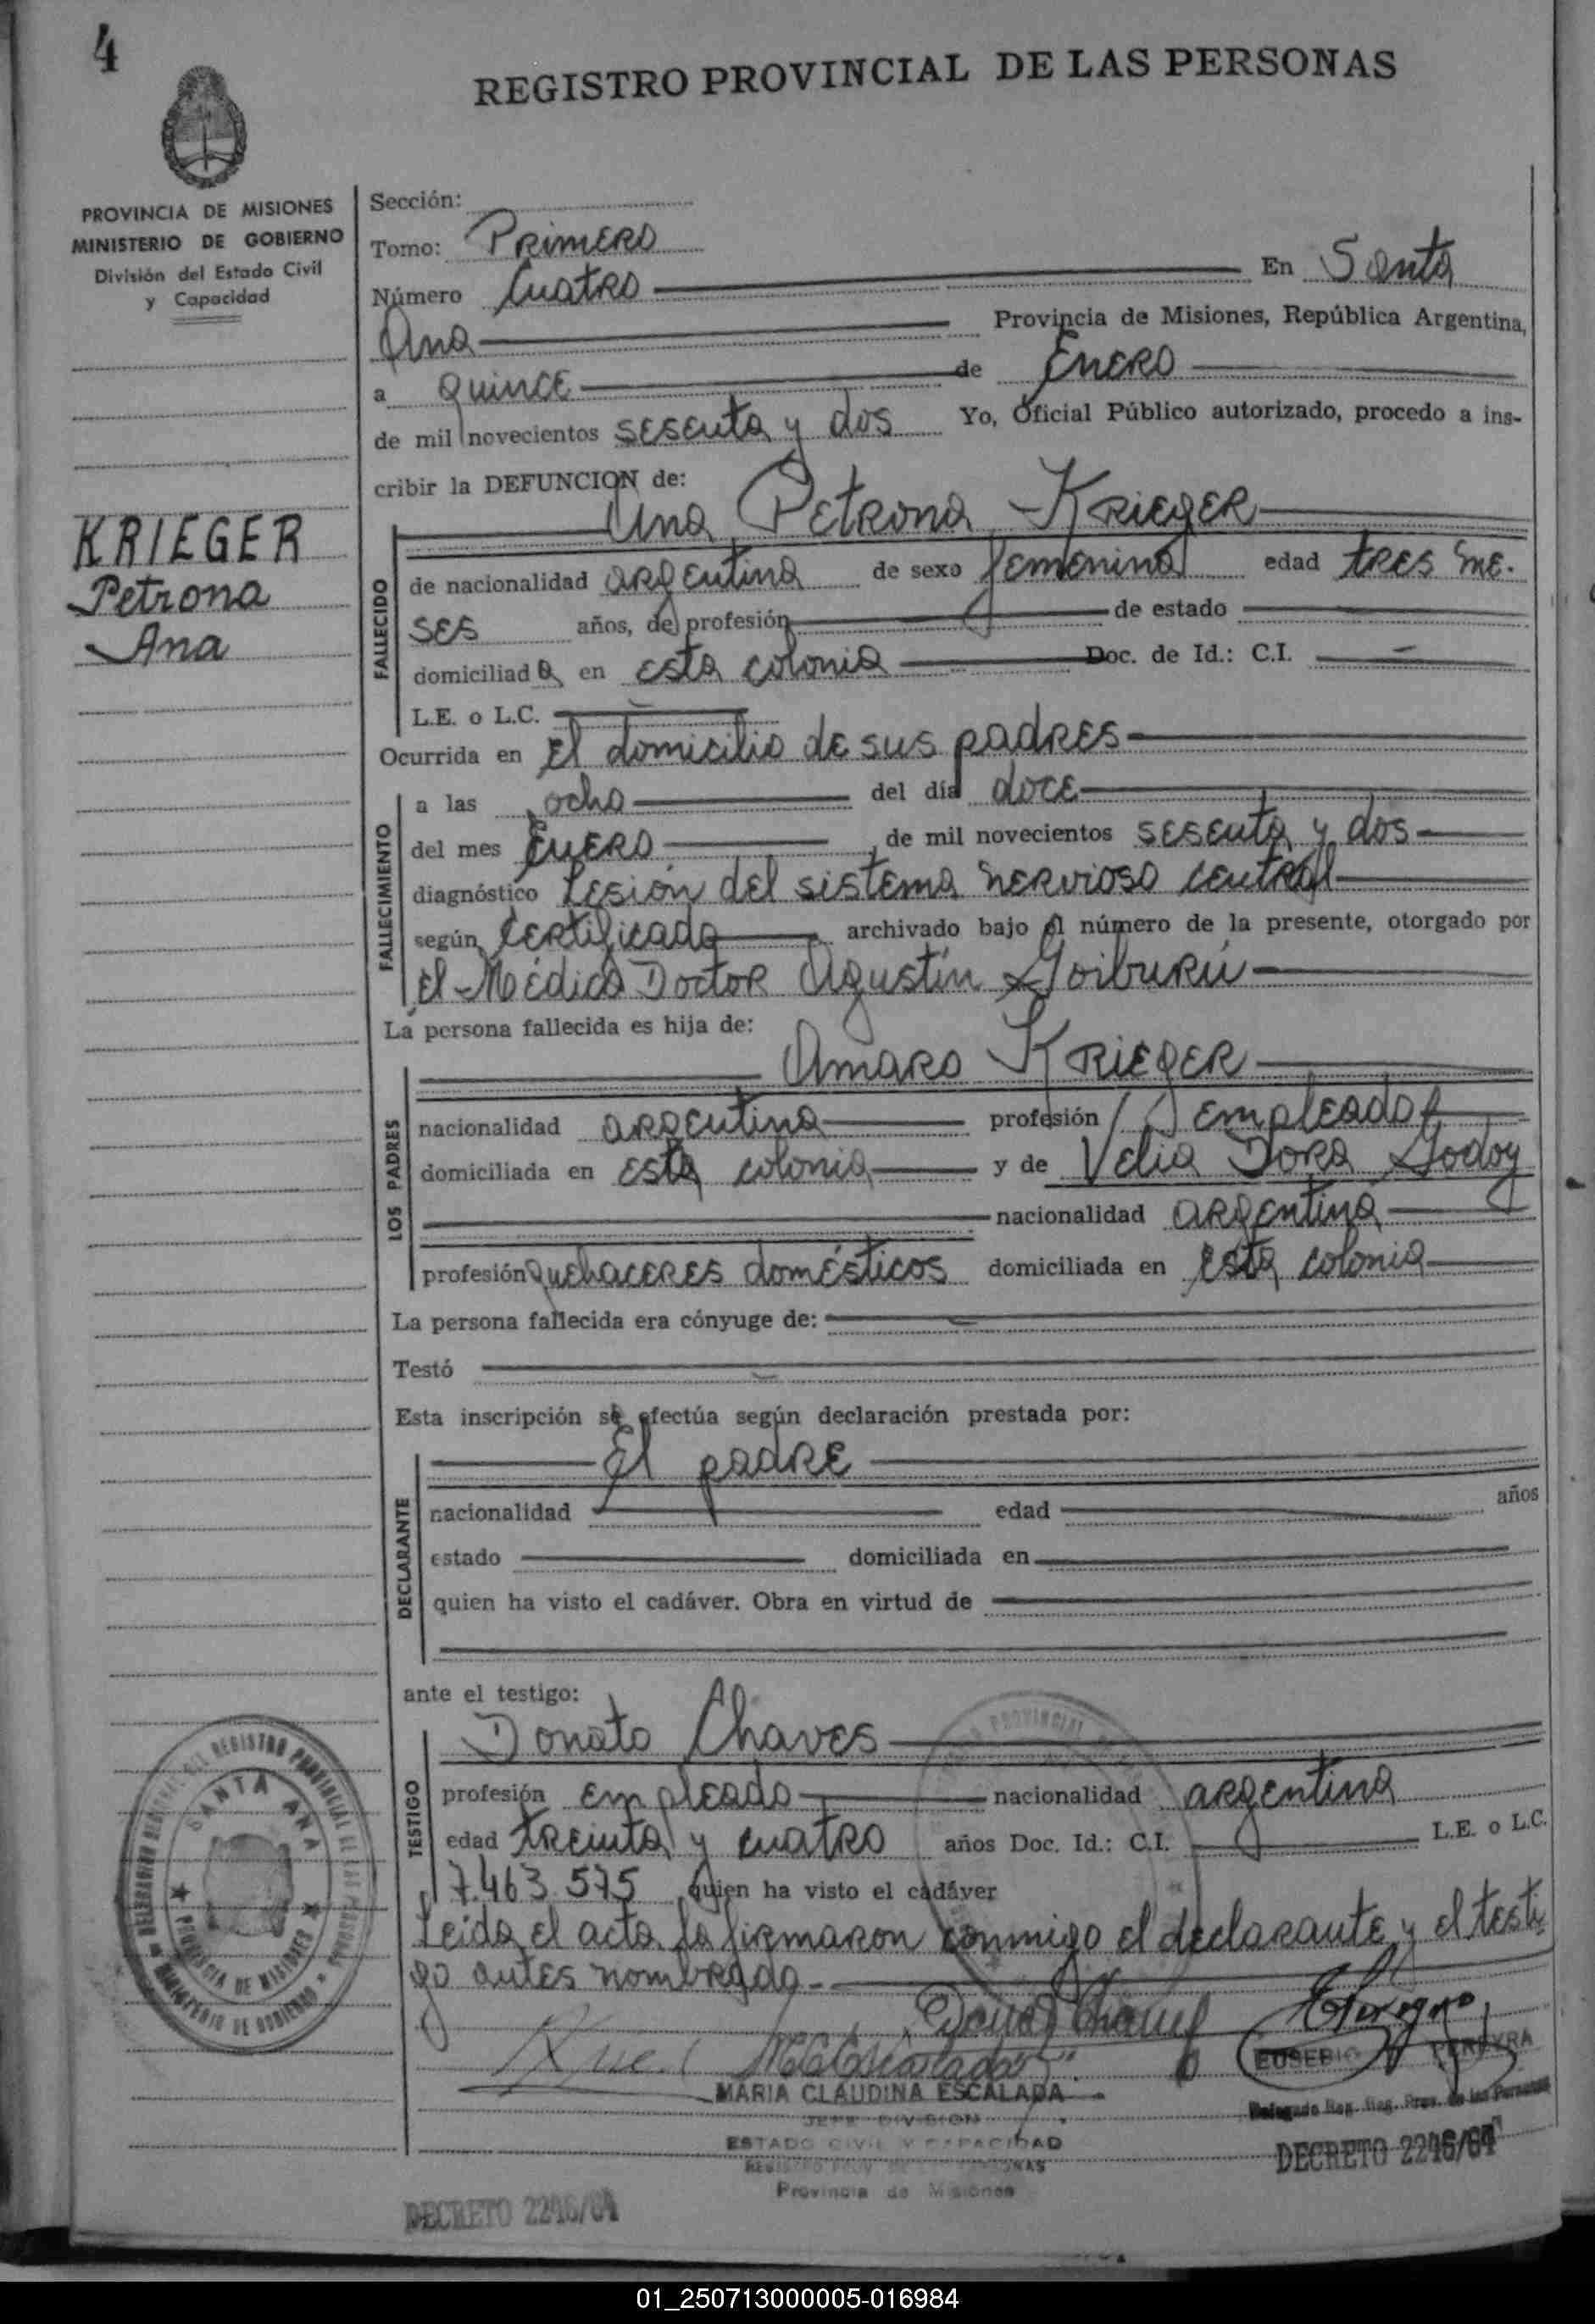 4
REGISTRO PROVINCIAL DE LAS PERSONAS
PROVINCIA DE MISIONES
MINISTERIO DE GOBIERNO
División del Estado Civil
y Capacidad
KRIEGER
Petrona
Ana
Sección:
Tomo: Primero
Número Cuatro En Santa
Ana Provincia de Misiones, República Argentina,
a quince de Enero
de mil novecientos sesenta y dos Yo, Oficial Público autorizado, procedo a ins-
cribir la DEFUNCION de:
Ana Petrona Krieger
FALLECIDO
de nacionalidad argentina de sexo femenino edad tres me-
ses años, de profesión de estado
domiciliada en esta colonia Doc. de Id.: C.I.
L.E. o L.C.
Ocurrida en el domicilio de sus padres
FALLECIMIENTO
a las ocho del día doce
del mes Enero de mil novecientos sesenta y dos
diagnóstico Lesión del sistema nervioso central
según Certificado archivado bajo el número de la presente, otorgado por
el Médico Doctor Agustín Goiburú
La persona fallecida es hija de:
Amaro Krieger
LOS PADRES
nacionalidad argentina profesión empleado
domiciliada en esta colonia y de Velia Dora Godoy
nacionalidad argentina
profesión quehaceres domésticos domiciliada en esta colonia
La persona fallecida era cónyuge de:
Testó
Esta inscripción se efectúa según declaración prestada por:
El padre
DECLARANTE
nacionalidad edad años
estado domiciliada en
quien ha visto el cadáver. Obra en virtud de
ante el testigo:
Donato Chaves
TESTIGO
profesión empleado nacionalidad argentina
edad treinta y cuatro años Doc. Id.: C.I. L.E. o L.C.
7.463.575 quien ha visto el cadáver
Leida el acta la firmaron conmigo el declarante y el testi
go antes nombrado.-
SANTA ANA
PROVINCIA DE MISIONES
MINISTERIO DE GOBIERNO
EUSEBIO PEREYRA
Delegado Reg. Reg. Prov. de las Personas
MARIA CLAUDINA ESCALADA
JEFE DIVISION
ESTADO CIVIL Y CAPACIDAD
Provincia de Misiones
DECRETO 2246/64
DECRETO 2246/64
01_250713000005-016984